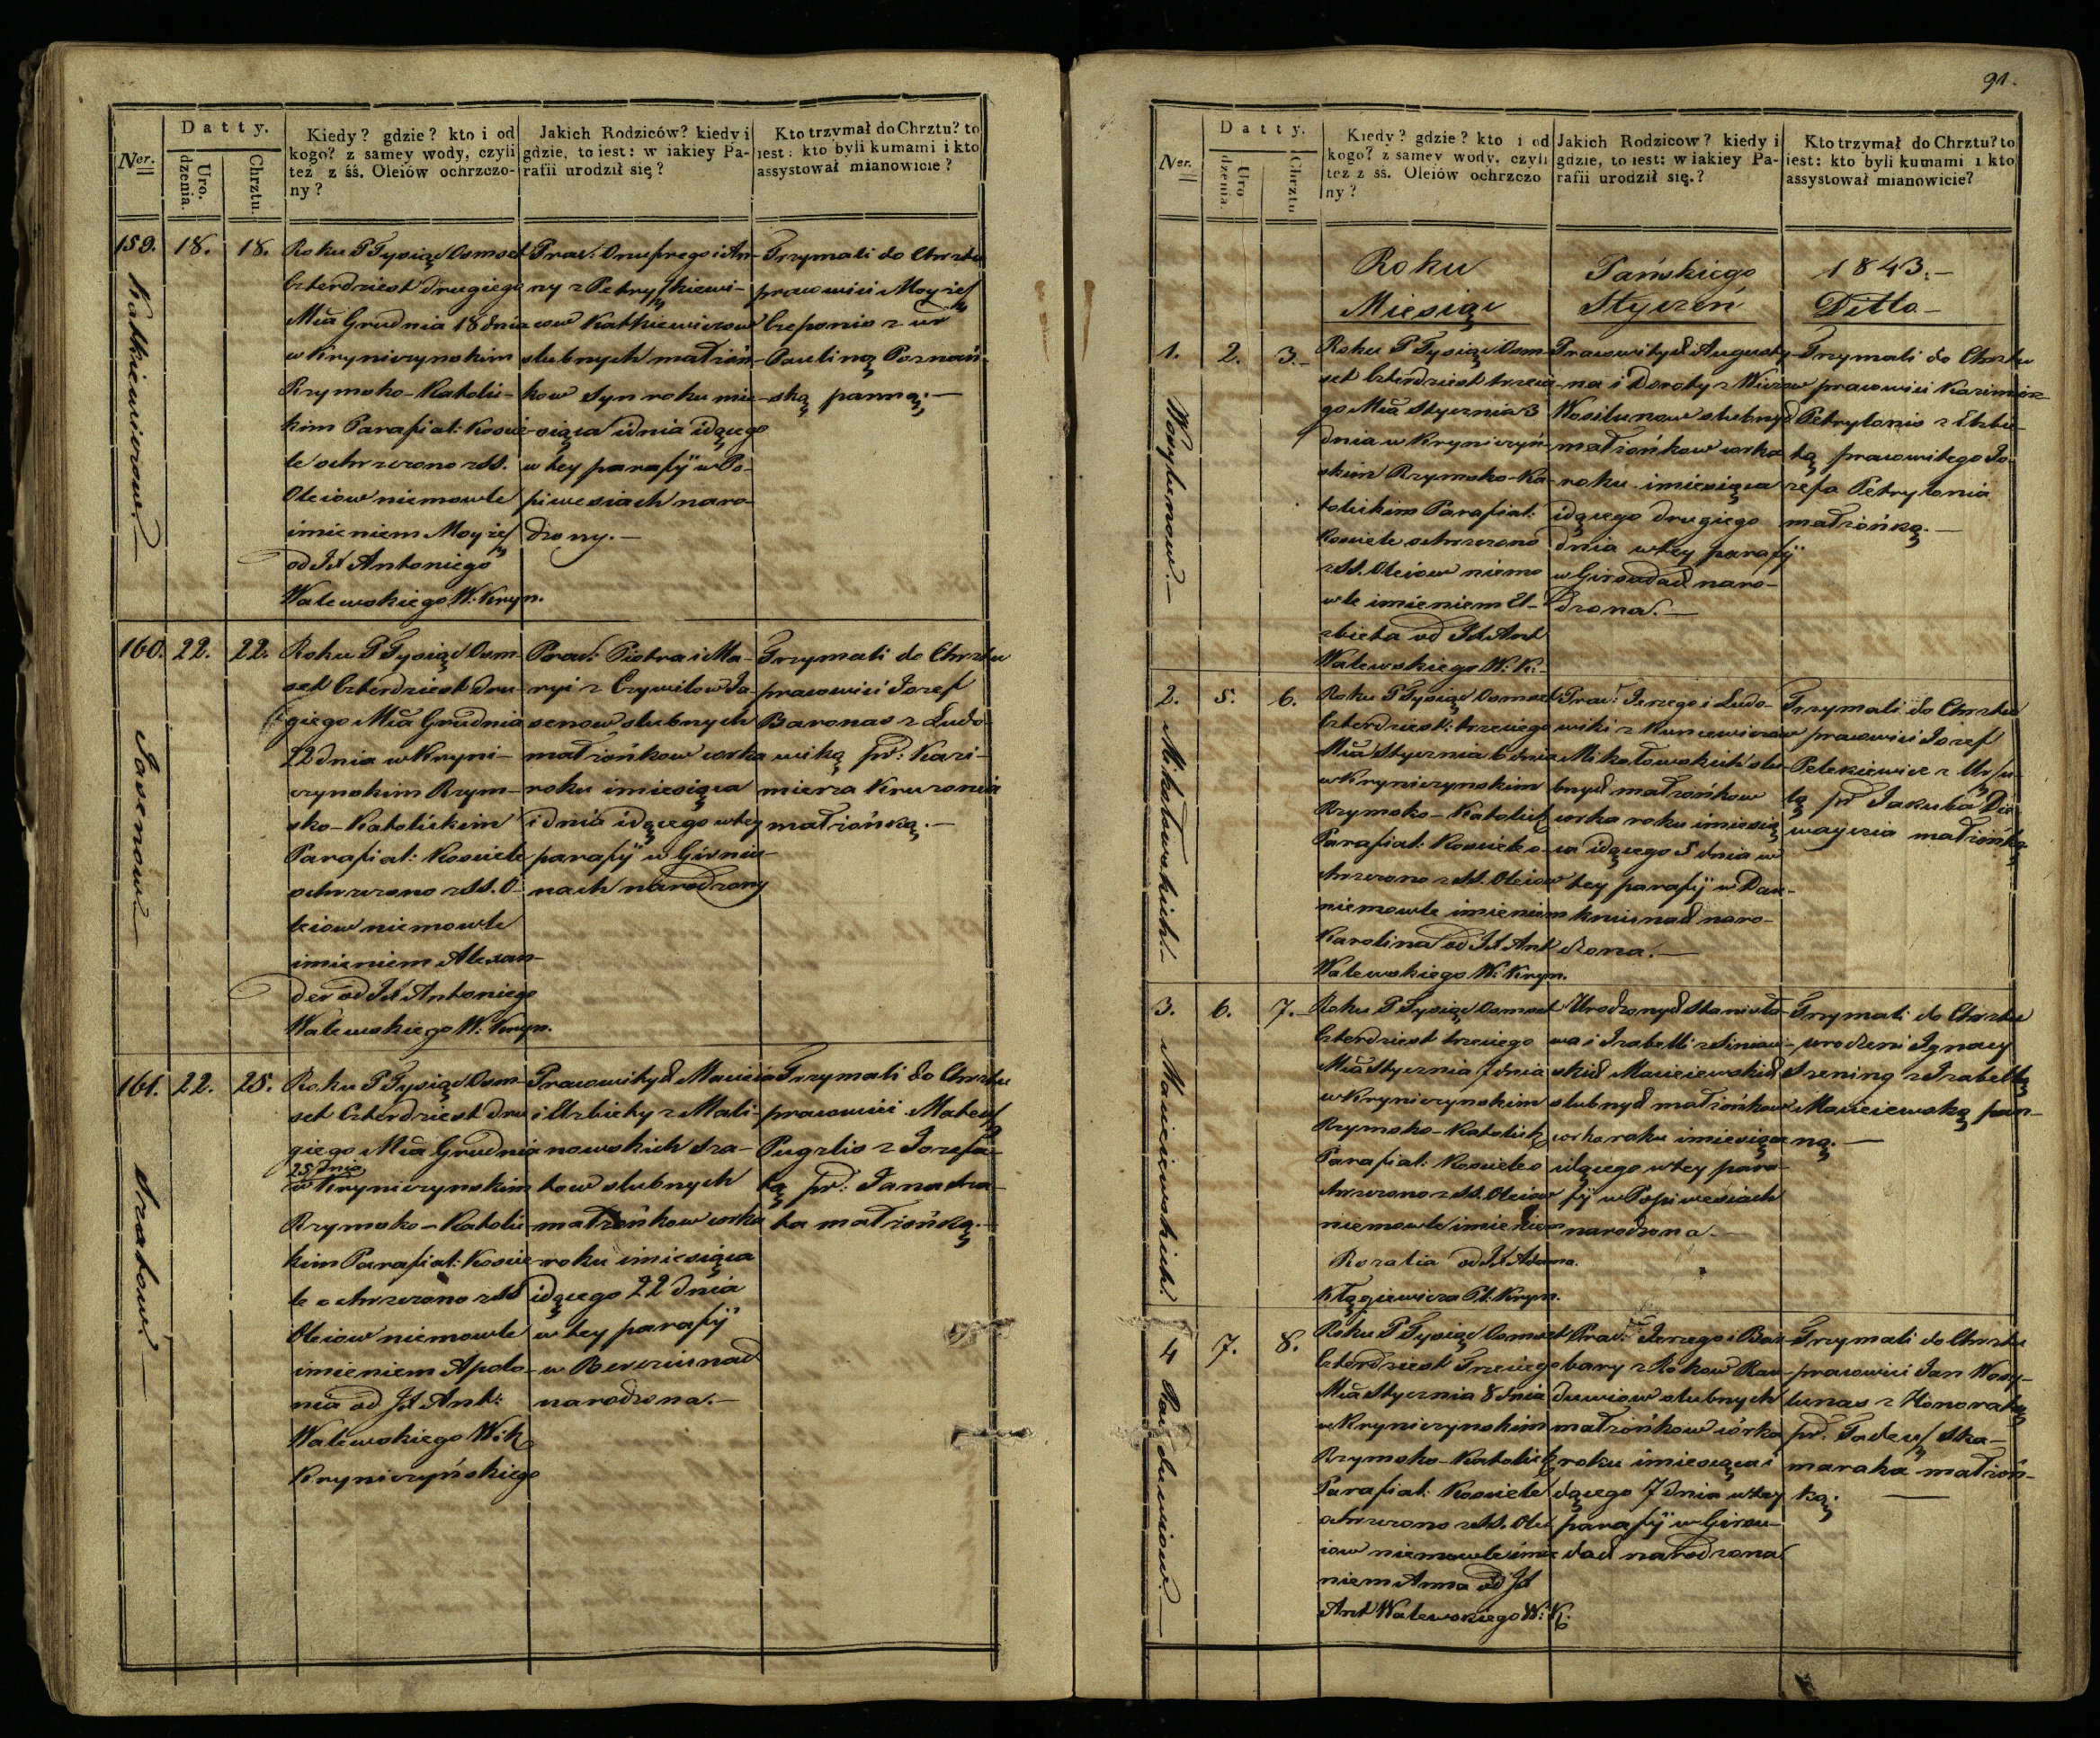 91.
Datty.
Ner.
Uro.
dzenia.
Chrztu.
Kiedy? gdzie? kto i od
kogo? z samey wody, czyli
też z śś. Oleiów ochrzczo-
ny?
Jakich Rodziców? kiedy i
gdzie, to iest: w iakiey Pa-
rafii urodził się?
Kto trzymał do Chrztu? to
iest: kto byli kumami i kto
assystował mianowicie?
159.
18.
18.
Roku P Tysiąc Osmset
Czterdziest drugiego
Mca Grudnia 18 dnia
w Kryniczynskim
Rzymsko-Katolic-
kim Parafial: Koscie-
le ochrzczono z SS.
Oleiow niemowle
imieniem Moyżesz
od JX Antoniego
Walewskiego W. Kryn.
Praw: Onufrego i An-
ny z Petryszkiewi-
czow Katkiewiczow
slubnych małżon-
kow syn roku mie-
siąca i dnia idącego
w tey parafij w Po-
piwesiach naro-
dzony.-
Trzymali do Chrztu
prawowici Moyżesz
Czeponis z
Pauliną Poznań-
ską panną.-
160.
22.
22.
Jasenow
Roku P Tysiąc Osm-
set Czterdziest dru-
giego Mca Grudnia
22 dnia w Kryni-
czynskim Rzym-
sko-Katolickim
Parafial: Kosciele
ochrzczono z SS. O-
leiow niemowle
imieniem Alexan-
der od JX Antoniego
Walewskiego W: Kryn.
Praw: Piotra i Ma-
ryi z Czywilow Ja-
senow slubnych
małżonkow
roku i miesiąca
i dnia idącego w tey
parafij w Girniu-
nach narodzony
Trzymali do Chrztu
prawowici Jozef
Baronas z Ludo-
wiką pr: Kazi-
mierza Kruzonia
małżonką.-
161.
22.
25.
Szatow.
Roku P Tysiąc Osm-
set Czterdziest dru
giego Mca Grudnia
25 dnia
w Kryniczynskim
Rzymsko-Katolic
kim Parafial: Koscie-
le ochrzczono z SS
Oleiow niemowle
imieniem Apolo-
nia od JX Ant:
Walewskiego W:
Kryniczyńskiego
Prawowitych Macieia
i Elzbiety z Mali-
nowskich Sza-
tow slubnych
małżonkow corka
roku i miesiąca
idącego 22 dnia
w tey parafij
w
narodzona.-
Trzymali do Chrztu
prawowici Mateusz
Pugzlis z Jozefa-
tą pr: Jana Sza-
ta małżonką.-
Datty.
Ner.
Uro
dzenia.
Chrztu
Kiedy? gdzie? kto i od
kogo? z samey wody, czyli
też z śś. Oleiów ochrzczo
ny?
Jakich Rodziców? kiedy i
gdzie, to iest: w iakiey Pa-
rafii urodził się.?
Kto trzymał do Chrztu? to
iest: kto byli kumami i kto
assystował mianowicie?
Roku Pańskiego 1843.-
Miesiąc Styczeń Ditto-
1.
2.
3.-
Roku P Tysiąc Osm-
set Czterdziest trzecie-
go Mca Stycznia 3
dnia w Kryniczyn-
skim Rzymsko-Ka-
tolickim Parafial:
Kosciele ochrzczono
z SS. Oleiow niemo
wle imieniem El-
zbieta od JX Ant
Walewskiego W: K:
Prawowitych Augusty-
na i Doroty z
slubnych
małżonkow corka
roku i miesiąca
idącego drugiego
dnia w tey parafij
w Girsudach naro-
dzona.-
Trzymali do Chrztu
prawowici Kazimierz
Petrylonis z Elzbie-
tą prawowitego Jo-
zefa Petrylonia
małżonką.-
2.
5.
6.
Mikołowskich.-
Roku P Tysiąc Osmset
Czterdziest: trzeciego
Mca Stycznia 6 dnia
w Kryniczynskim
Rzymsko-Katolick
Parafial: Kosciele o-
chrzczono z SS. Oleiow
niemowle imieniem
Karolina od JX Ant
Walewskiego W: Kryn.
Praw: Jerzego i Ludo-
wiki z Kuncewiczow
Mikołowskich slu-
bnych małżonkow
corka roku i miesią
ca idącego 5 dnia w
tey parafij w Dau-
kniunach naro-
dzona.-
Trzymali do Chrztu
prawowici Jozef
Petekiewicz z Urszu-
lą pr Jakuba
małżonką
3.
6.
7.-
Macieiewskich.
Roku P Tysiąc Osmset
Czterdziest trzeciego
Mca Stycznia 7 dnia
w Kryniczynskim
Rzymsko-Katolick
Parafial: Kosciele o
chrzczono z SS. Oleiow
niemowle imieniem
Rozalia od JX Adama
Kłągiewicza Pl: Kryn.
Urodzonych Stanisła-
wa i Izabelli z Siniaw-
skich Macieiewskich
slubnych małżonkow
corka roku i miesiąca
idącego w tey para-
fij w Popiwesiach
narodzona.-
Trzymali do Chrztu
urodzeni Ignacy
Szening z Izabellą
Macieiewską pan-
ną.-
4
7.
8.
Roku P Tysiąc Osmset
Czterdziest Trzeciego
Mca Stycznia 8 dnia
w Kryniczynskim
Rzymsko-Katolick
Parafial: Kosciele
ochrzczono z SS. Ole
iow niemowle imie
niem Anna od JX
Ant Walewskiego W: K:
Praw: Jerzego i Bar-
bary z Rokow Rau-
duwiow slubnych
małżonkow córka
roku i miesiąca i
dącego 7 dnia w tey
parafij w Girsu-
dach narodzona
Trzymali do Chrztu
prawowici Jan Wosy-
lunas z Honoratą
pr. Tadeusz Ska-
maraka małżon-
ką.-